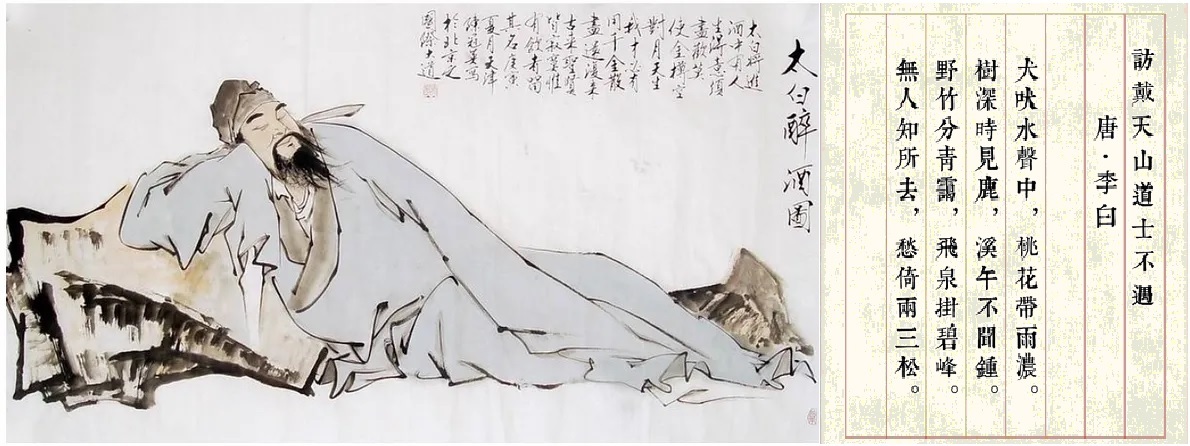 太白醉酒圖
太白將進
酒中有人
生得意須
盡歡莫
使金樽空
對月天生
我才必有
用千金散
盡還復來
古來聖賢
皆寂寞惟
有飲者留
其名庚寅
夏月天津
寫
於北京之
國繪大道
訪戴天山道士不遇
唐·李白
犬吠水聲中，桃花帶雨濃。
樹深時見鹿，溪午不聞鍾。
野竹分青靄，飛泉掛碧峰。
無人知所去，愁倚兩三松。